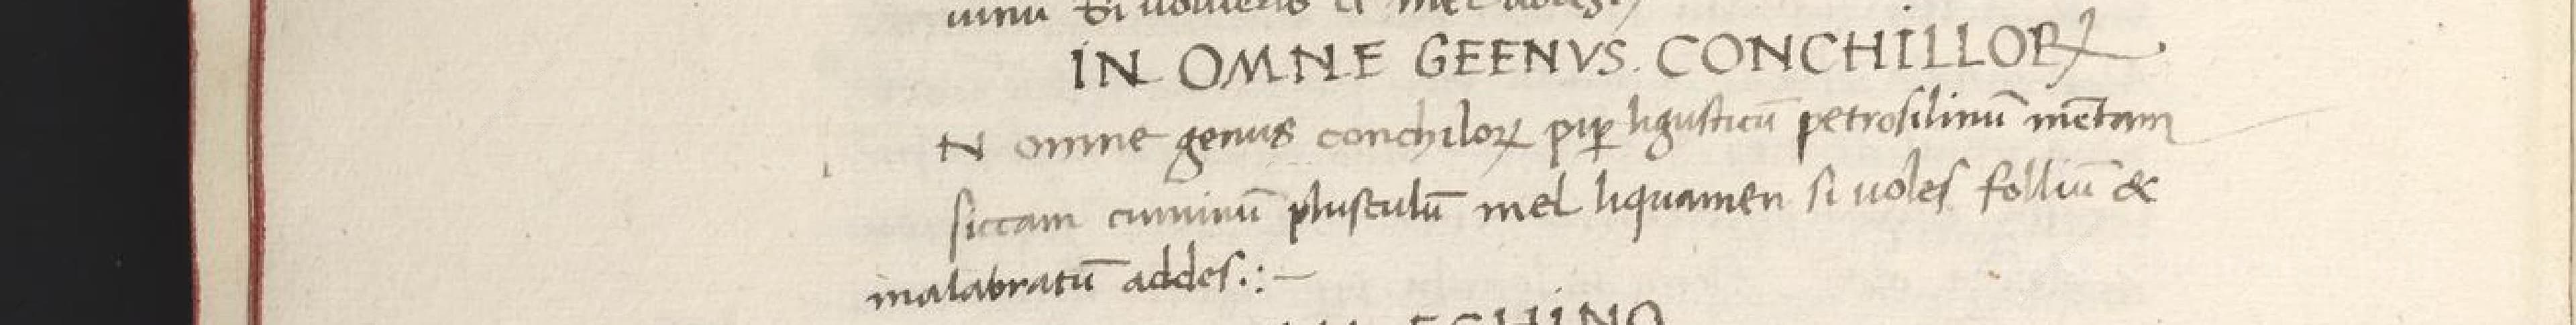 IN OMNE GEENVS. CONCHILLORꝜ.
N omne genus conchiloꝝ pip̱ ligusticū petrosilinū mētam
siccam cuminū plusculū mel liquamen si uoles folliū &
malabratū addes.:~
ECHINO